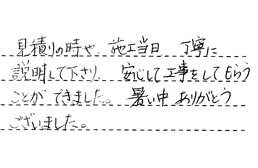 見積りの時や、施工当日、丁寧に
説明して下さり、安心して工事をしてもらう
ことができました。暑い中ありがとう
ございました。